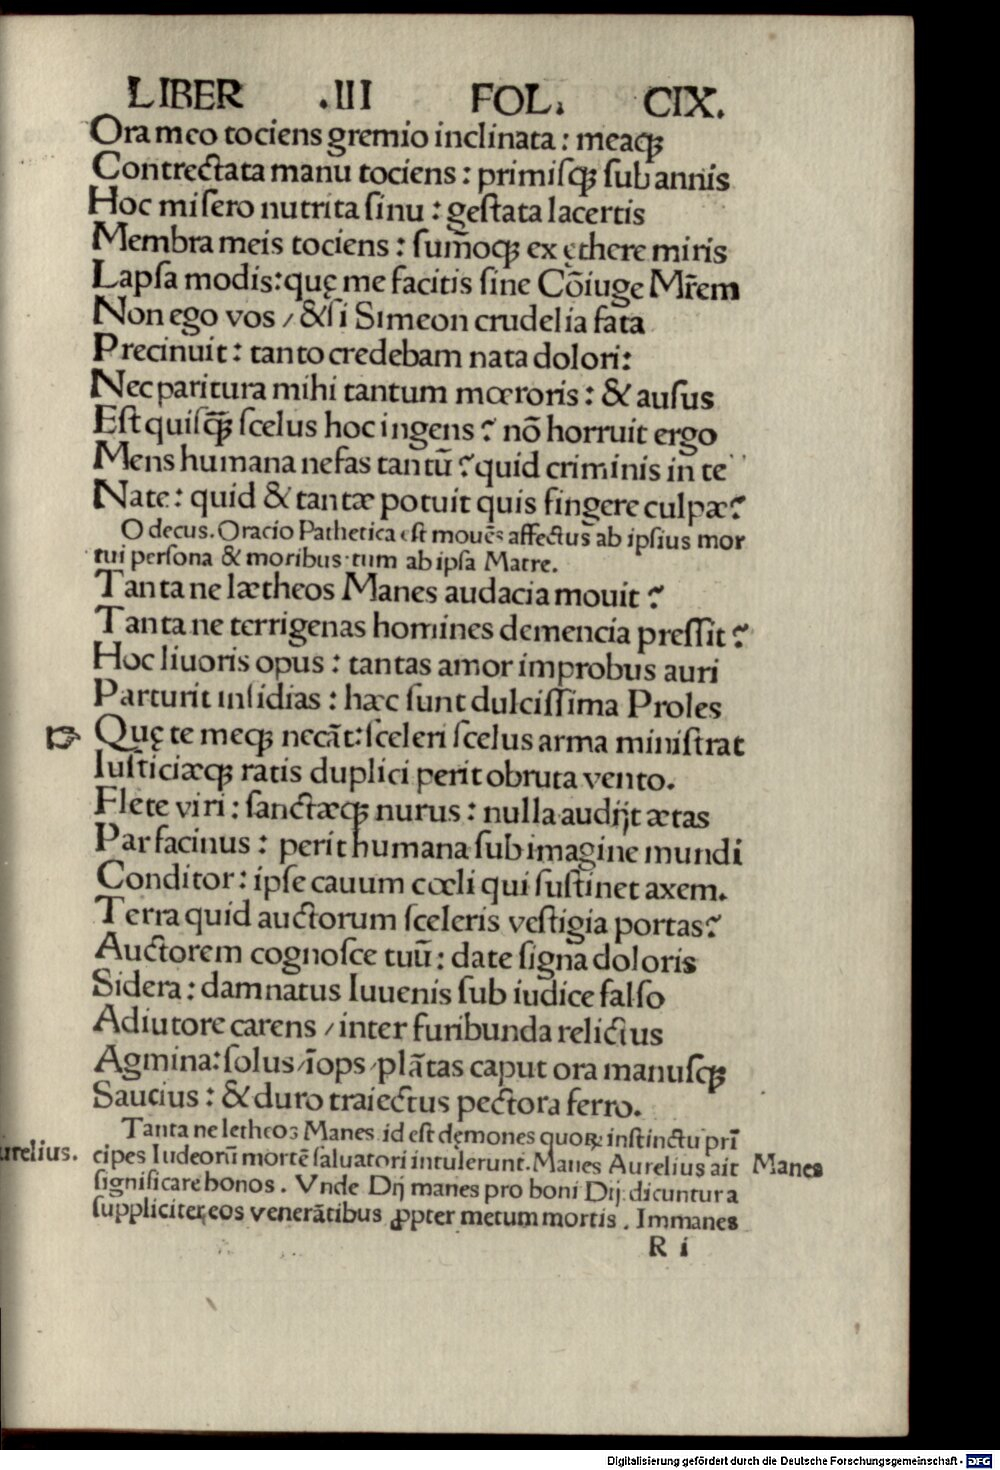 LIBER .III FOL. CIX.
Ora meo tociens gremio inclinata : meaqꝫ
Contrectata manu tociens : primiſqꝫ ſub annis
Hoc miſero nutrita ſinu : geſtata lacertis
Membra meis tociens : ſum̄oqꝫ ex ęthere miris
Lapſa modis: quę me facitis ſine Cōiuge Mr̄em
Non ego vos / & ſi Simeon crudelia fata
Precinuit : tanto credebam nata dolori:
Nec paritura mihi tantum mœroris : & auſus
Eſt quiſqꝫ̄ ſcelus hoc ingens ? nō horruit ergo
Mens humana nefas tantū ? quid criminis in te
Nate : quid & tantæ potuit quis fingere culpæ?
O decus. Oracio Pathetica eſt mouēs affectus ab ipſius mor
tui perſona & moribus tum ab ipſa Matre.
Tanta ne lætheos Manes audacia mouit ?
Tanta ne terrigenas homines demencia preſſit ?
Hoc liuoris opus : tantas amor improbus auri
Parturit inſidias : hæc ſunt dulciſſima Proles
☞ Quę te meqꝫ necāt: ſceleri ſcelus arma miniſtrat
Iuſticiæqꝫ ratis duplici perit obruta vento.
Flete viri : ſanctæqꝫ nurus : nulla audijt ætas
Par facinus : perit humana ſub imagine mundi
Conditor : ipſe cauum cœli qui ſuſtinet axem.
Terra quid auctorum ſceleris veſtigia portas?
Auctorem cognoſce tuū : date ſigna doloris
Sidera : damnatus Iuuenis ſub iudice falſo
Adiutore carens / inter furibunda relictus
Agmina: ſolus / īops / plātas caput ora manuſqꝫ
Saucius : & duro traiectus pectora ferro.
Tanta ne letheos Manes. id eſt dęmones quoꝝ inſtinctu prī
urelius. cipes Iudeorū mortē ſaluatori intulerunt. Manes Aurelius ait Manes
ſignificare bonos . Vnde Dij manes pro boni Dij dicuntur a
ſuppliciter eos venerātibus ꝓpter metum mortis . Immanes
R i
Digitalisierung gefördert durch die Deutsche Forschungsgemeinschaft - DFG